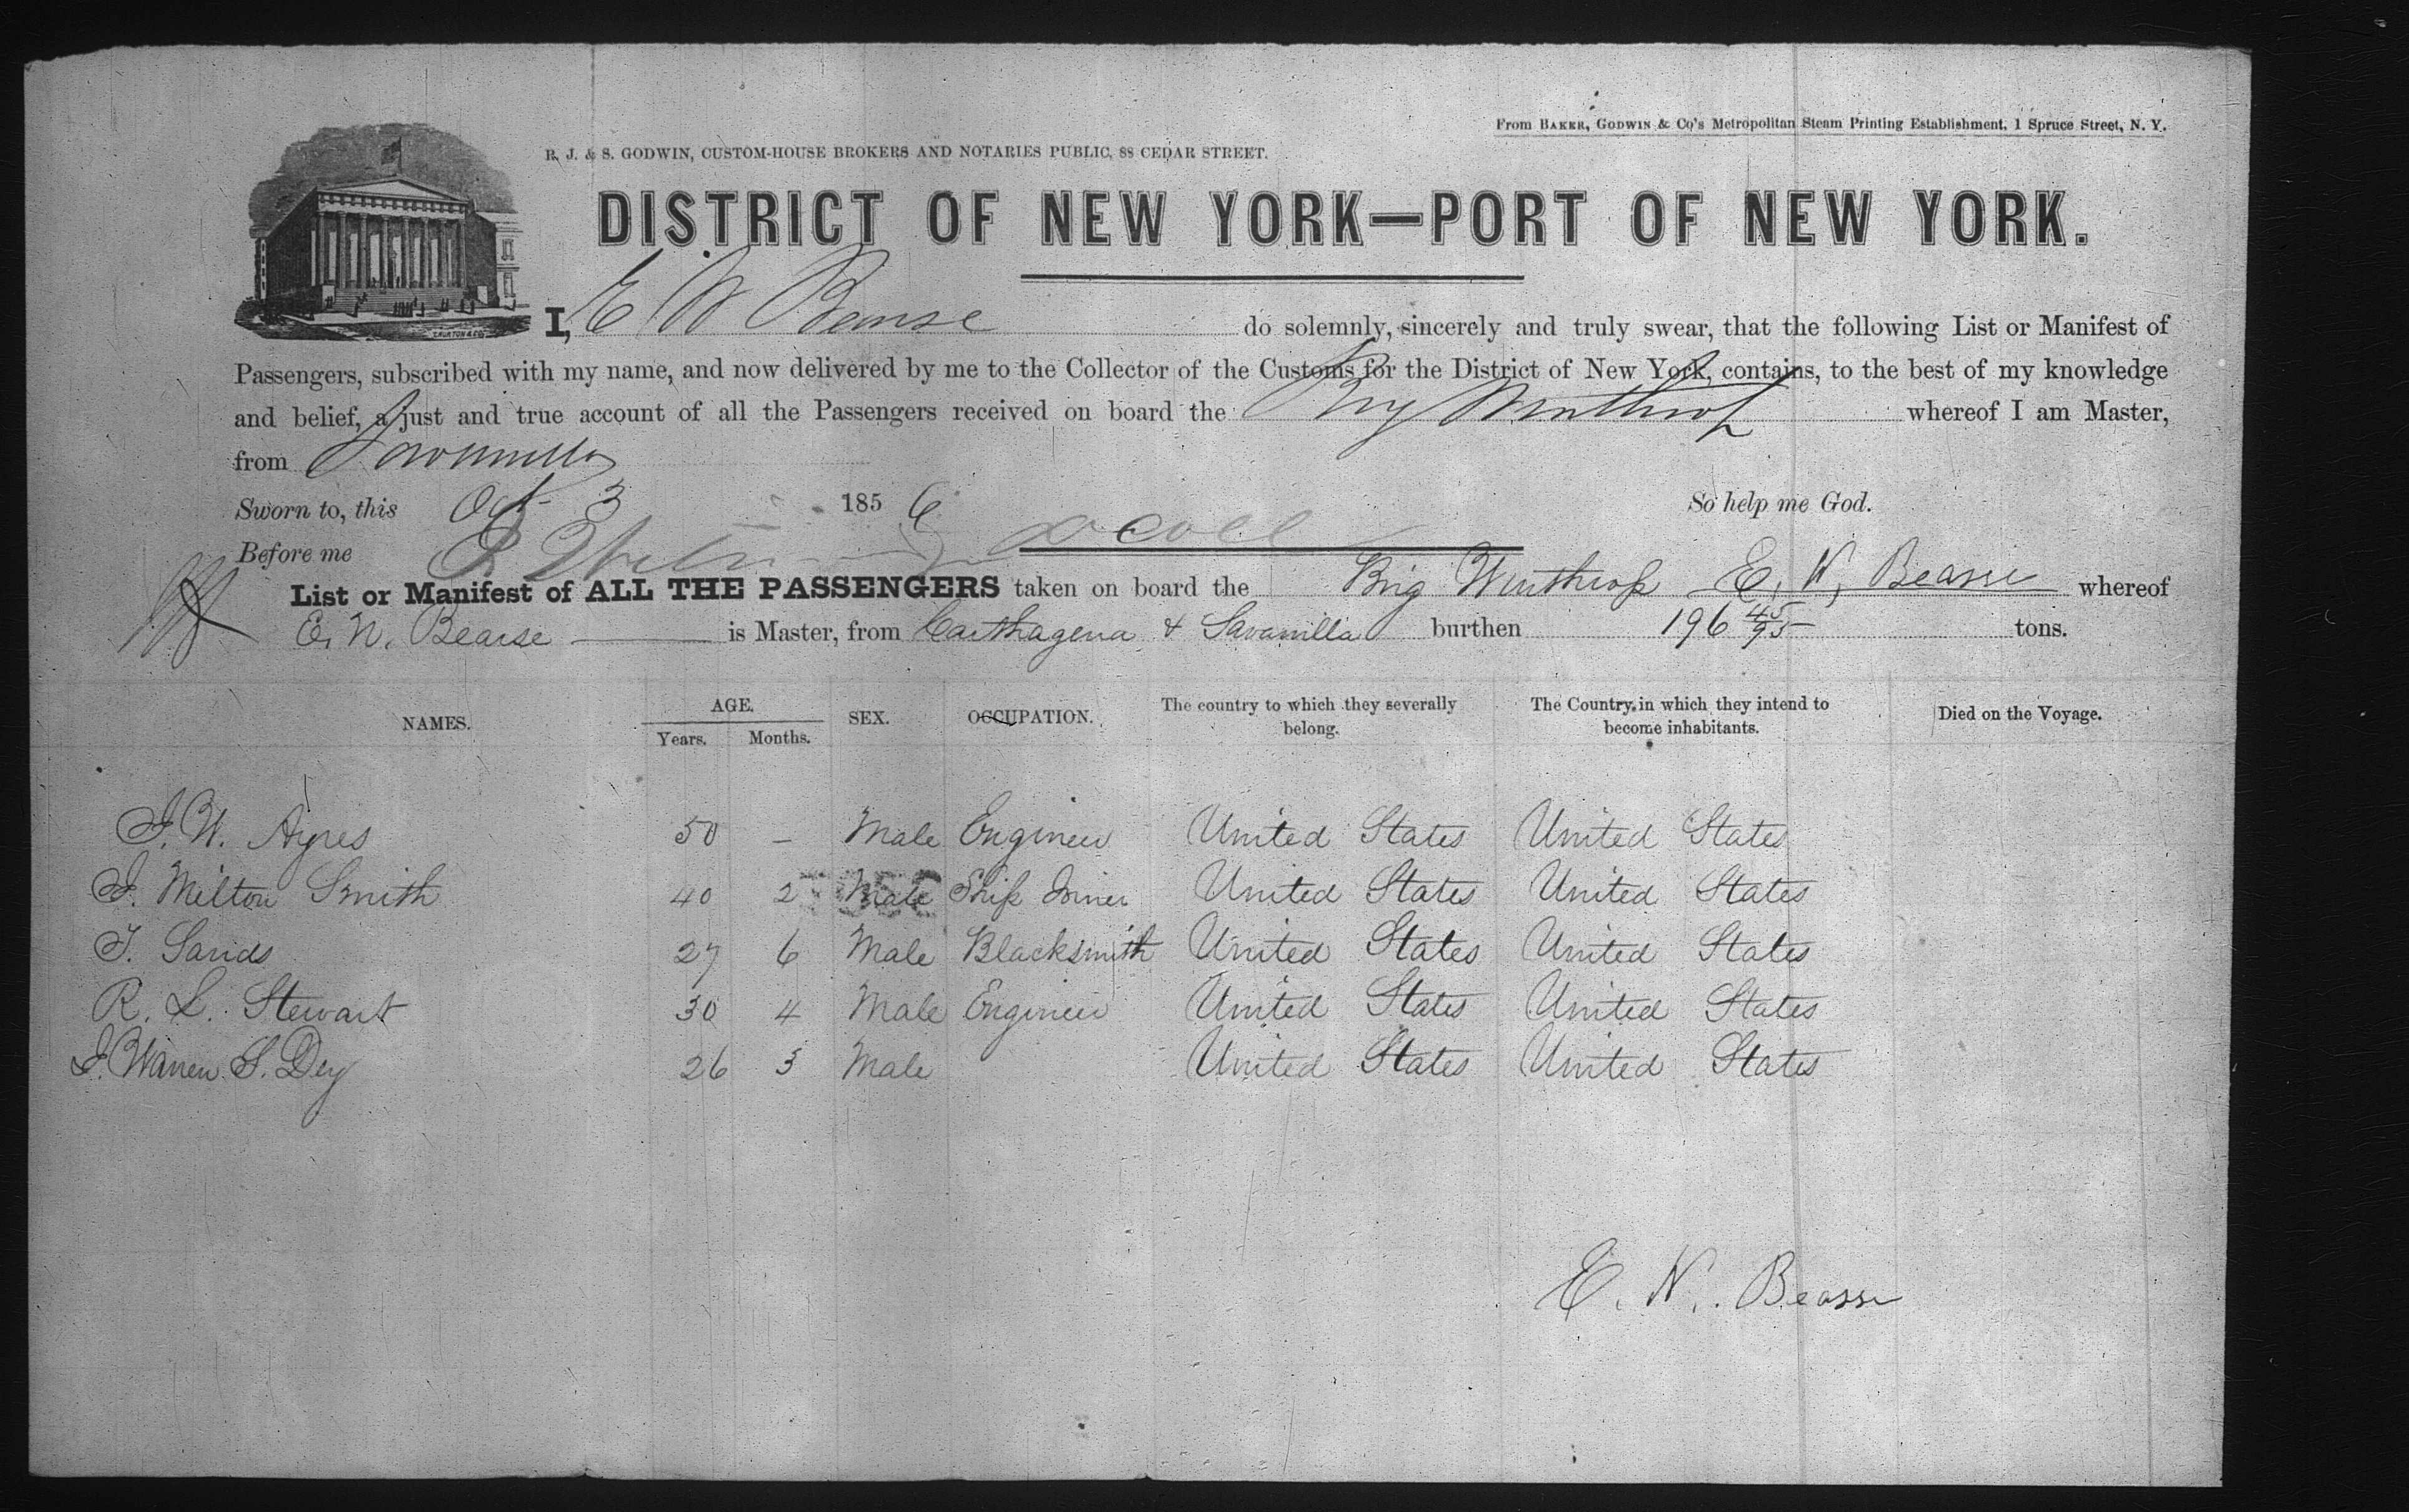 From BAKER, GODWIN & Co's Metropolitan Steam Printing Establishment, 1 Spruce Street, N. Y.
R. J. & S. GODWIN, CUSTOM-HOUSE BROKERS AND NOTARIES PUBLIC, 88 CEDAR STREET.
DISTRICT OF NEW YORK—PORT OF NEW YORK.
I, E W Bearse do solemnly, sincerely and truly swear, that the following List or Manifest of
Passengers, subscribed with my name, and now delivered by me to the Collector of the Customs for the District of New York, contains, to the best of my knowledge
and belief, a just and true account of all the Passengers received on board the Brig Winthrop whereof I am Master,
from Savanilla
Sworn to, this Oct 3 1856 So help me God.
Before me
List or Manifest of ALL THE PASSENGERS taken on board the Brig Winthrop E. N. Bearse whereof
E. N. Bearse is Master, from Carthagena & Savanilla burthen 196 45/95 tons.
NAMES. AGE. Years. Months. SEX. OCCUPATION. The country to which they severally belong. The Country in which they intend to become inhabitants. Died on the Voyage.
J. W. Ayres 50 – Male Engineer United States United States
J. Milton Smith 40 2 Male Ship Joiner United States United States
T. Sands 27 6 Male Blacksmith United States United States
R. L. Stewart 30 4 Male Engineer United States United States
J. Warren S. Dey 26 3 Male United States United States
E. N. Bearse